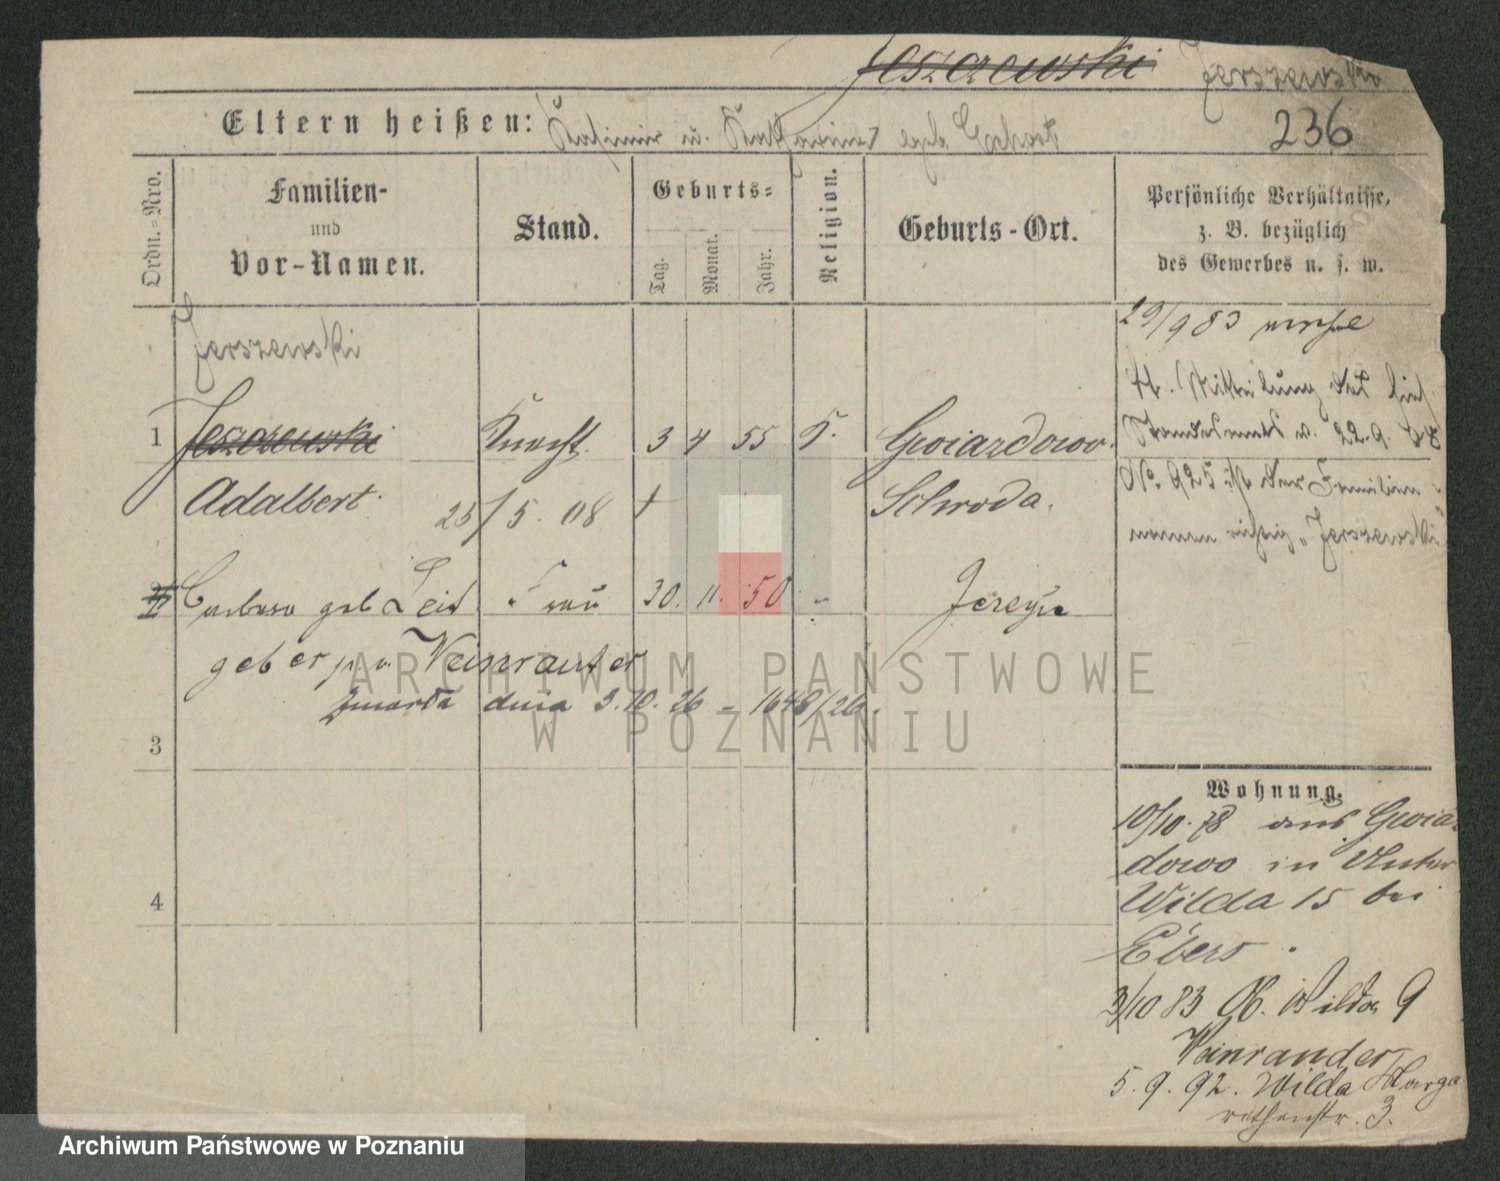 Jeszczewski Jerszewski
Eltern heißen: Kasimir u. Katharina geb.
236
Ordn.-Nro.
Familien-
und
Vor-Namen.
Stand.
Geburts-
Tag.
Monat.
Jahr.
Religion.
Geburts-Ort.
Persönliche Verhältnisse,
z. B. bezüglich
des Gewerbes u. s. w.
Jerszewski
1 Jeszczewski Knecht. 3 4 55 K. Gwiazdowo.
Adalbert 25/5. 08 + Schroda.
2 Barbara geb. Frau 30. 11. 50 "
geb er p. v. Weinrauter
zmarła dnia 3.10.26 - 1648/26.
3
4
29/9 83
lt. Mitteilung des
Standesamts v. 22.9.
No. 925 ist der Familien-
namen richtig "Jerszewski"
Wohnung.
10/10. 78 aus Gwia-
dowo in Unter
Wilda 15 bei
Ebers.
3/10 83 Ob. Wilda 9
Weinrander
5. 9. 92. Wilda Marga
rethenstr. 3.
ARCHIWUM PAŃSTWOWE
W POZNANIU
Archiwum Państwowe w Poznaniu